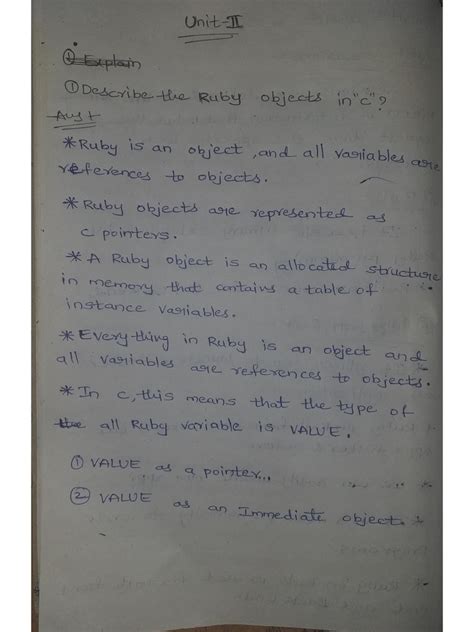 Unit-II
① Explain
① Describe the Ruby objects in "c"?
Ans:-
* Ruby is an object, and all variables are
references to objects.
* Ruby objects are represented as
c pointers.
* A Ruby object is an allocated structure
in memory that contains a table of
instance variables.
* Everything in Ruby is an object and
all variables are references to objects.
* In c, this means that the type of
the all Ruby variable is VALUE.
① VALUE as a pointer..
② VALUE as an Immediate object.